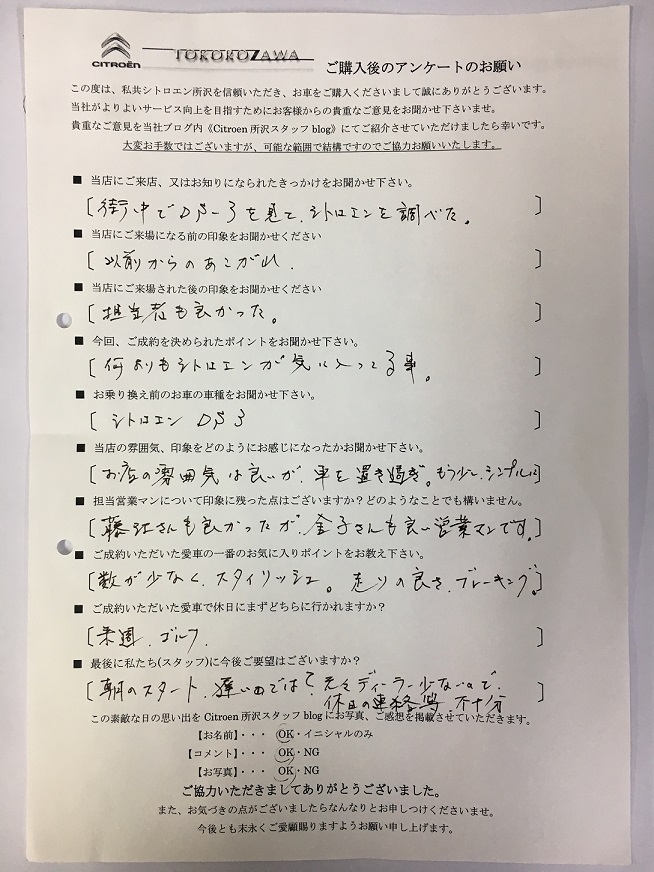 CITROËN
TOKOROZAWA
ご購入後のアンケートのお願い
この度は、私共シトロエン所沢を信頼いただき、お車をご購入くださいまして誠にありがとうございます。
当社がよりよいサービス向上を目指すためにお客様からの貴重なご意見をお聞かせ下さいませ。
貴重なご意見を当社ブログ内《Citroen 所沢スタッフ blog》にてご紹介させていただけましたら幸いです。
大変お手数ではございますが、可能な範囲で結構ですのでご協力お願いいたします。
■ 当店にご来店、又はお知りになられたきっかけをお聞かせ下さい。
[街中でDS-3を見て、シトロエンを調べた。]
■ 当店にご来場になる前の印象をお聞かせください
[以前からのあこがれ.]
■ 当店にご来場された後の印象をお聞かせください
[担当者も良かった。]
■ 今回、ご成約を決められたポイントをお聞かせ下さい。
[何よりもシトロエンが気に入ってる事。]
■ お乗り換え前のお車の車種をお聞かせ下さい。
[シトロエン DS3]
■ 当店の雰囲気、印象をどのようにお感じになったかお聞かせ下さい。
[お店の雰囲気は良いが、車を置き過ぎ。もう少し、シンプルに]
■ 担当営業マンについて印象に残った点はございますか？どのようなことでも構いません。
[藤江さんも良かったが、金子さんも良い営業マンです。]
■ ご成約いただいた愛車の一番のお気に入りポイントをお教え下さい。
[数が少なく、スタイリッシュ。走りの良さ、ブレーキング。]
■ ご成約いただいた愛車で休日にまずどちらに行かれますか？
[来週、ゴルフ]
■ 最後に私たち(スタッフ)に今後ご要望はございますか？
[朝のスタート、遅いのでは？元々ディーラー少ないので、
休日の連絡等、不十分]
この素敵な日の思い出を Citroen 所沢スタッフ blog にお写真、ご感想を掲載させていただきます。
【お名前】・・・ OK・イニシャルのみ
【コメント】・・・ OK・NG
【お写真】・・・ OK・NG
ご協力いただきましてありがとうございました。
また、お気づきの点がございましたらなんなりとお申しつけくださいませ。
今後とも末永くご愛顧賜りますようお願い申し上げます。